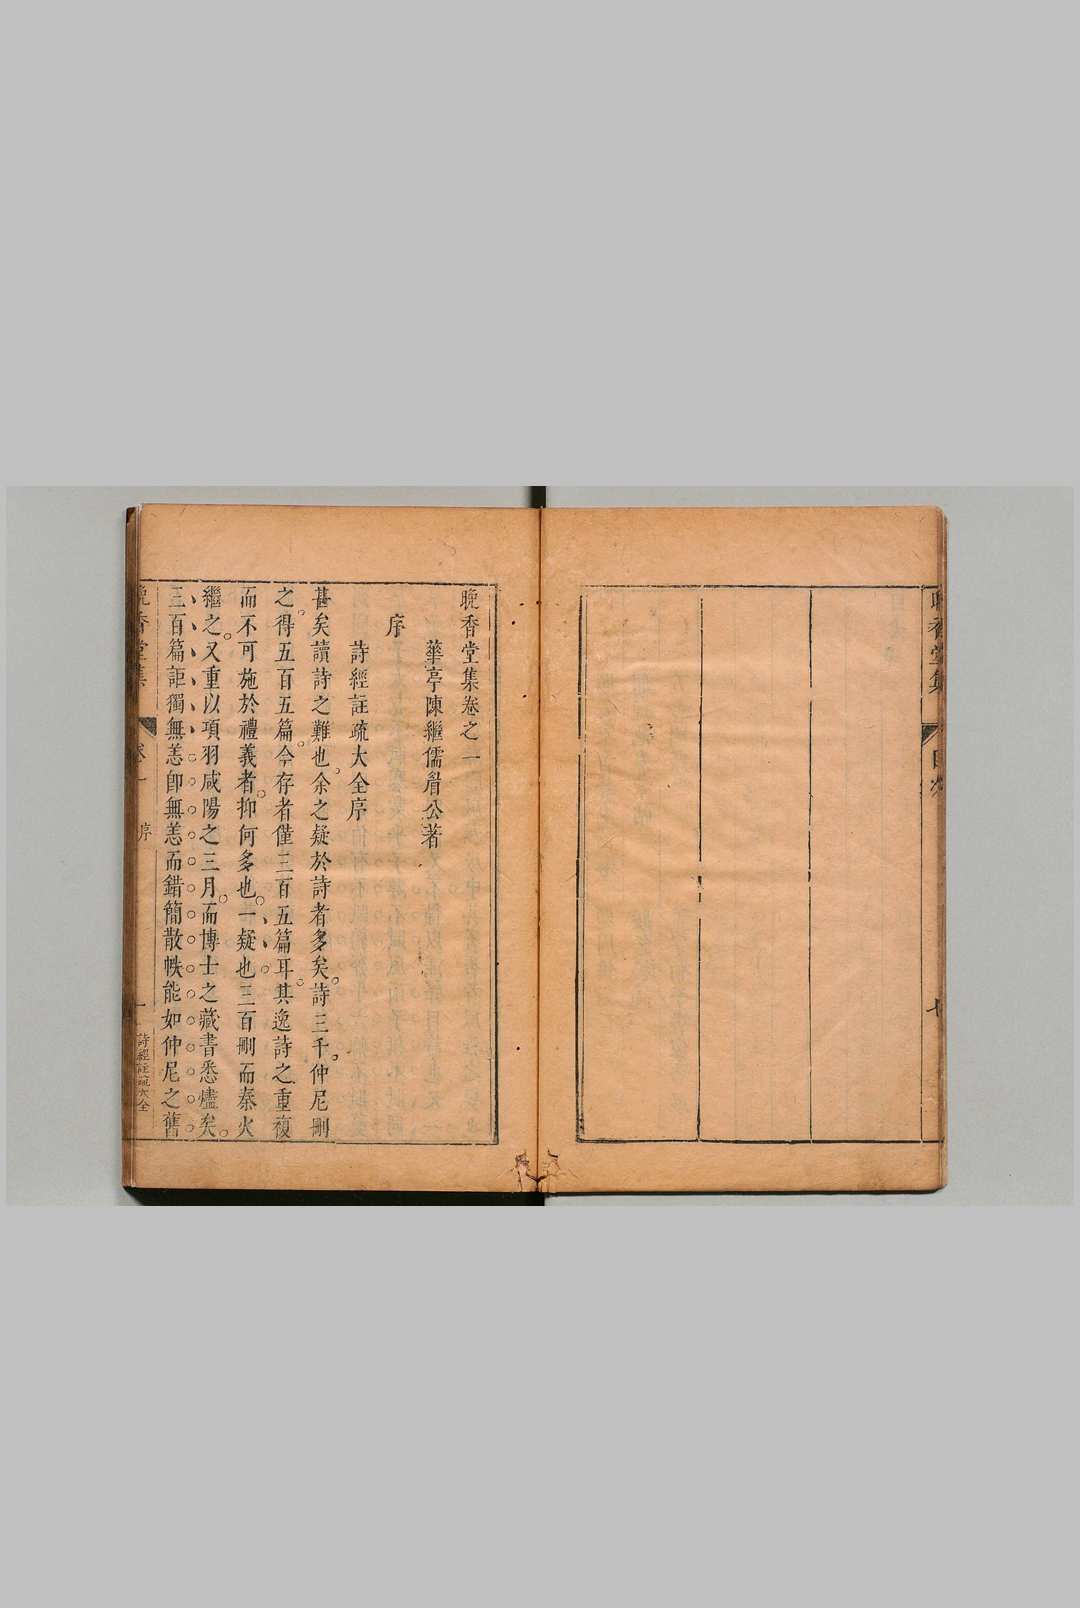 晚香堂集
目次
晚香堂集卷之一
華亭陳繼儒眉公著
序
詩經註疏大全序
甚矣讀詩之難也余之疑於詩者多矣詩三千仲尼刪
之得五百五篇今存者僅三百五篇耳其逸詩之重複
而不可施於禮義者抑何多也一疑也三百刪而秦火
繼之又重以項羽咸陽之三月而博士之藏書悉燼矣
三百篇詎獨無恙卽無恙而錯簡散帙能如仲尼之舊
晚香堂集
卷一
序
一
詩經註疏大全